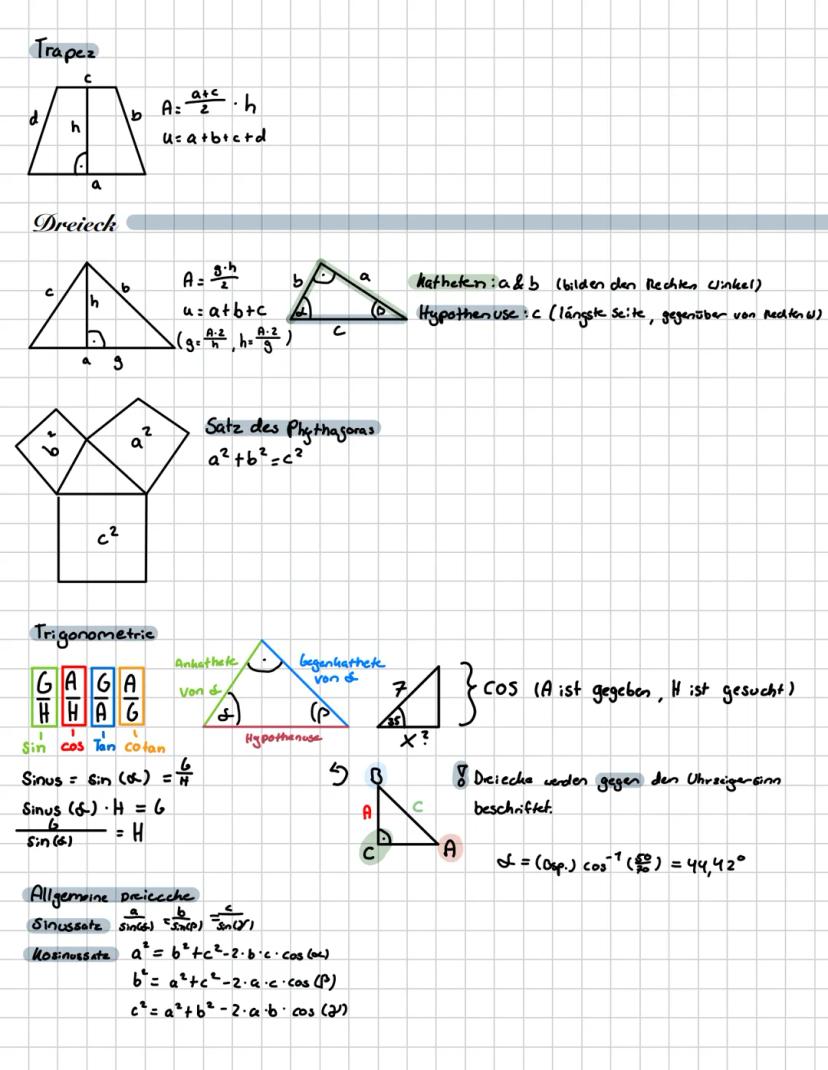 Trapez
c
d h b
a
A = a+c/2 · h
u = a+b+c+d
Dreieck
c h b
a g
A = g·h/2
u = a+b+c
(g = A·2/h, h = A·2/g)
b a
α β
c
Katheten: a & b (bilden den Rechten Winkel)
Hypothenuse: c (längste Seite, gegenüber von Rechten W)
b² a²
c²
Satz des Phythagoras
a² + b² = c²
Trigonometrie
G/H A/H G/A A/G
sin cos Tan cotan
Ankathete von α
Gegenkathete von α
α β
Hypothenuse
7
35
x?
} cos (A ist gegeben, H ist gesucht)
Sinus = sin(α) = G/H
Sinus (α) · H = G
G/sin(α) = H
B
A C
C A
! Dreiecke werden gegen den Uhrzeigersinn
beschriftet.
α = (Bsp.) cos⁻¹ (50/70) = 44,42°
Allgemeine Dreiecke
Sinussatz a/sin(α) = b/sin(β) = c/sin(γ)
Kosinussatz a² = b² + c² - 2·b·c·cos(α)
b² = a² + c² - 2·a·c·cos(β)
c² = a² + b² - 2·a·b·cos(γ)